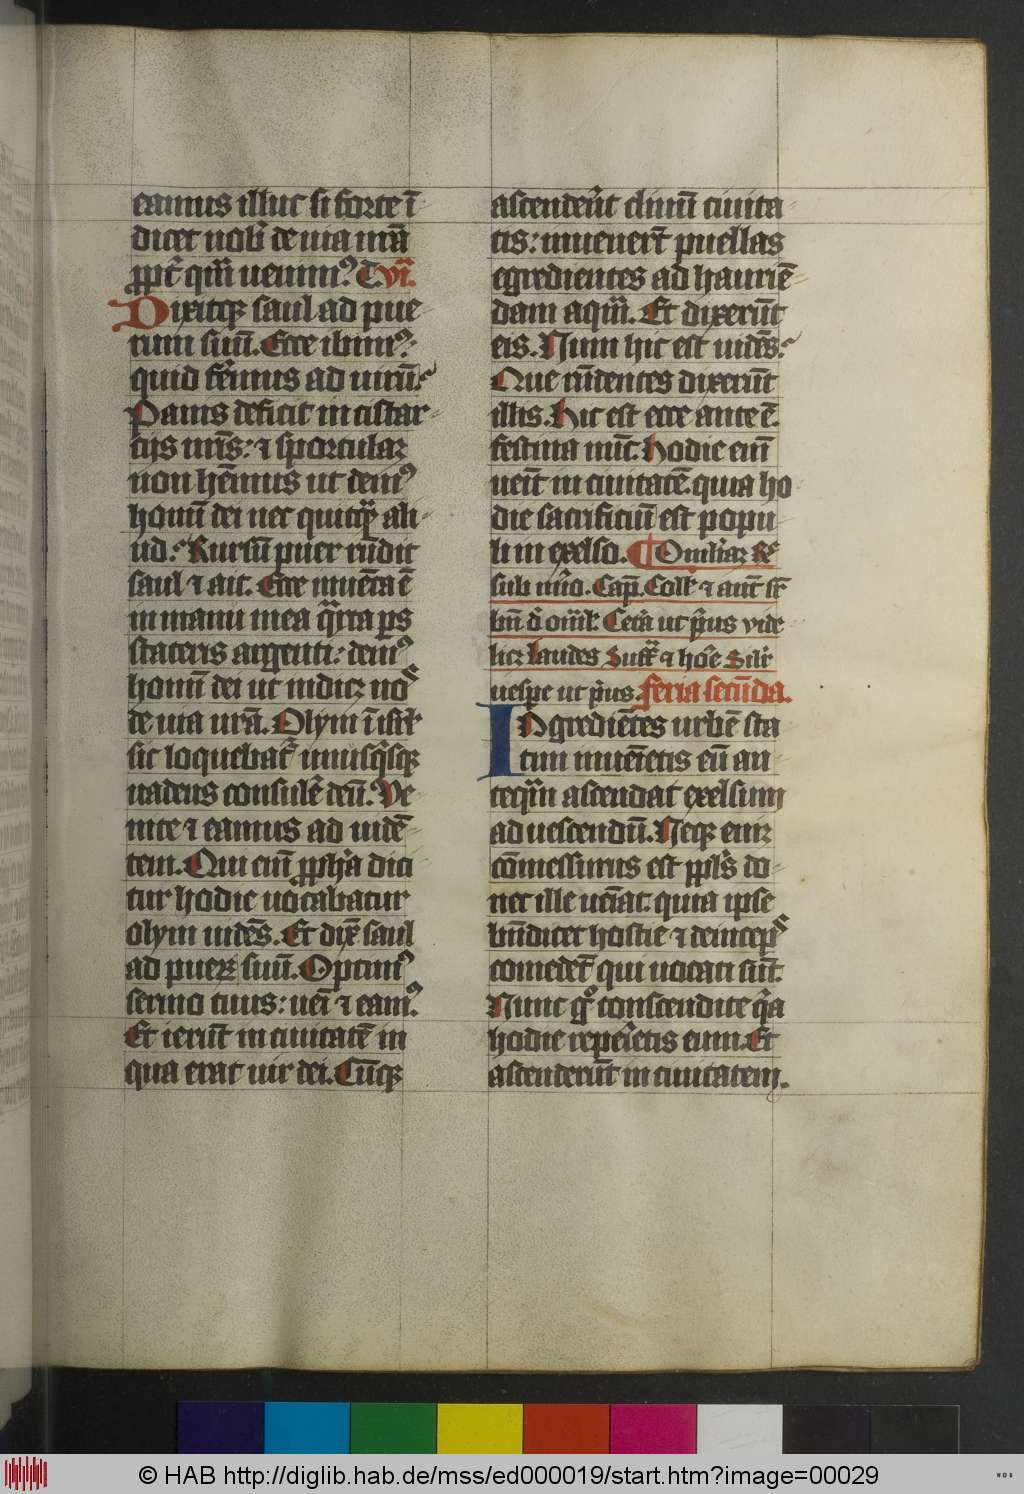 eamus illuc si forte ī-
dicet nob̾ de uia nr̄a
ꝓpt̾ qm̄ uenim⁹. T. vi̾.
Dixitqꝫ saul ad pue-
rum suū. Ecce ibim⁹:
quid fer̄mus ad uirū:
Panis defecit in cistar-
cijs nr̄is: ⁊ sportulaꝫ
non hēmus ut dem⁹
homī dei nec quicqꝫ ali-
ud. Rursū puer rn̄dit
saul ⁊ ait. Ecce inuēta ē
in manu mea q̈rta ps
stateris argenti: dem⁹
homī dei ut indicꝫ nob̾
de uia nr̄a. Olym ī isrl̾
sic loquebat̾ unusq̾sqꝫ
uadens consulē deū. Ve-
nite ⁊ eamus ad uidē-
tem. Qui eni ꝓph̾a dici
tur hodie uocabatur
olym uidēs. Et dix̾ saul
ad pueꝝ suū. Optim⁹
sermo tuus: uei̅ ⁊ eam⁹.
Et ierūt in ciuitatē in
qua erat uir dei. Cūqꝫ
ascender̄t cliuū ciuita-
tis: inuenerūt puellas
egredientes ad haurien-
dam aqm̄. Et dixerūt
eis. Num hic est uidēs:
Que rn̄dentes dixerūt
illis. Hic est ecce ante ē.
festina nūc. Hodie enī
ueīt in ciuitatē. quia ho
die sacrificiū est popu-
li in exelso. ¶ Omiliaꝝ Rē
sub nūo. Cap̄. Coll̾ ⁊ ant̄ sr̄
bn̄ d̾ omīl̾. Cet̾a ut p̾us vide-
licꝫ laudes Suffr̄ ⁊ ho̾e Sil̾r
uespe ut p̾us. feria secūda.
Ingrediētes urbē sta
tim inuēietis eū an
teq̈m ascendat exelsum
ad uescendū. Neqꝫ enī
cōmessurus est ppl̾s do-
nec ille uēiat: quia ipse
bn̄dicet hostie ⁊ deincep̾s
comedēt qui uocati sūt.
Nunc g̾ conscendite q̾a
hodie repeietis eum. Et
ascenderūt in ciuitatem.
© HAB http://diglib.hab.de/mss/ed000019/start.htm?image=00029